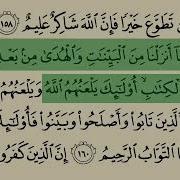 ن تَطَوَّعَ خَيْرًا فَإِنَّ ٱللَّهَ شَاكِرٌ عَلِيمٌ ١٥٨
مَآ أَنزَلْنَا مِنَ ٱلْبَيِّنَـٰتِ وَٱلْهُدَىٰ مِنۢ بَعْدِ
ٱلْكِتَـٰبِ أُو۟لَـٰٓئِكَ يَلْعَنُهُمُ ٱللَّهُ وَيَلْعَنُهُمُ
ٱلَّذِينَ تَابُوا۟ وَأَصْلَحُوا۟ وَبَيَّنُوا۟ فَأُو۟لَـٰٓئِ
ٱلتَّوَّابُ ٱلرَّحِيمُ ١٦٠ إِنَّ ٱلَّذِينَ كَفَرُو